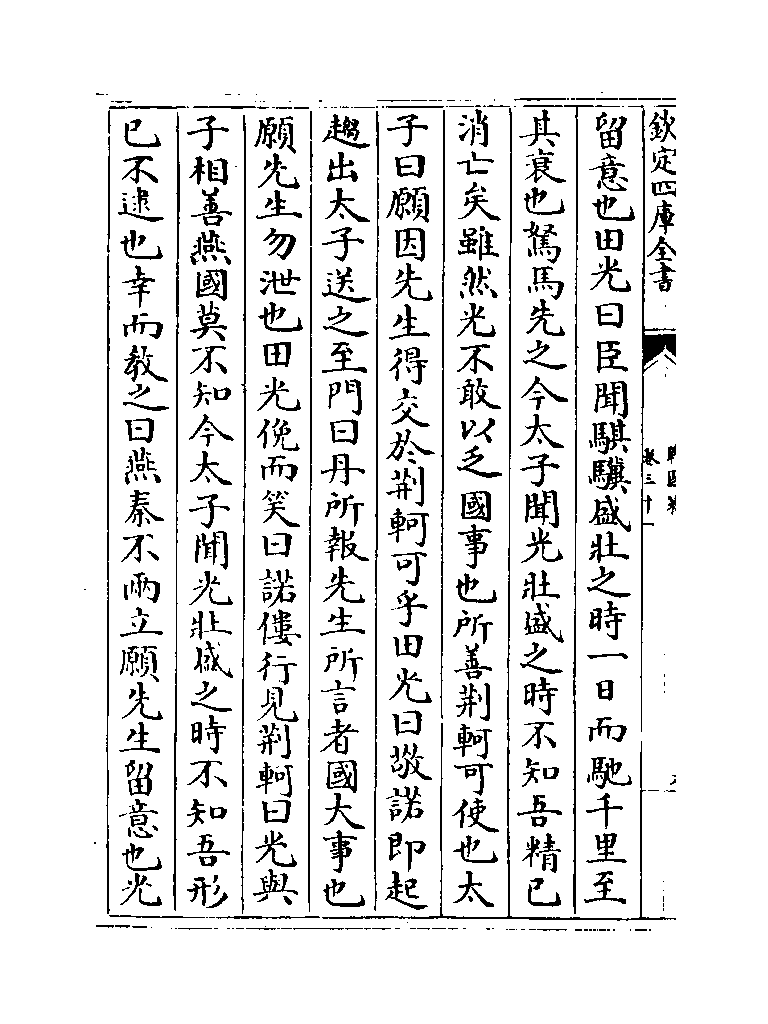 欽定四庫全書
卷三十一
留意也田光曰臣聞騏驥盛壯之時一日而馳千里至
其衰也駑馬先之今太子聞光壯盛之時不知吾精已
消亡矣雖然光不敢以乏國事也所善荆軻可使也太
子曰願因先生得交於荆軻可乎田光曰敬諾即起
趨出太子送之至門曰丹所報先生所言者國大事也
願先生勿泄也田光俛而笑曰諾僂行見荆軻曰光與
子相善燕國莫不知今太子聞光壯盛之時不知吾形
已不逮也幸而教之曰燕秦不兩立願先生留意也光